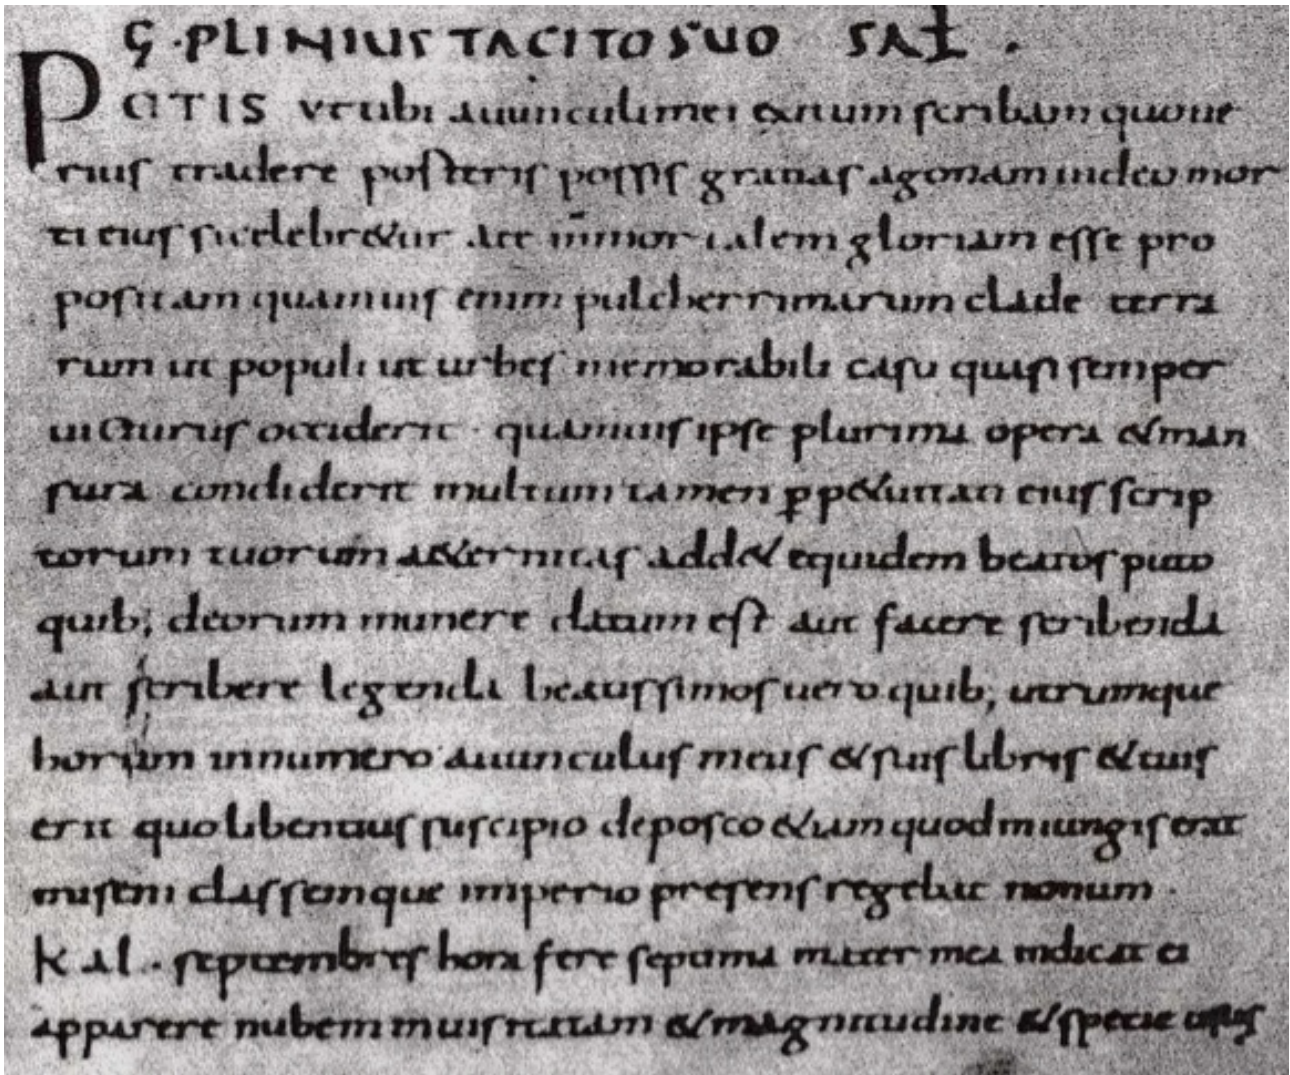 Ç · PLINIUS TACITO SUO SAL .
PETIS ut tibi auunculi mei exitum scribam quo ue
rius tradere posteris possis gratias ago nam uideo mor
ti eius si celebretur a te īmmortalem gloriam esse pro
positam quamuis enim pulcherrimarum clade terra
rum ut populi ut urbes memorabili casu quasi semper
uicturus occiderit · quamuis ipse plurima opera & man
sura condiderit multum tamen ꝑp&uitati eius scrip
torum tuorum a&ernitas add& equidem beatos puto
quib; deorum munere datum est aut facere scribenda
aut scribere legenda beatissimos uero quib; utrumque
horum in numero auunculus meus & suis libris & tuis
erit quo libentius suscipio deposco &iam quod iniungis erat
miseni classemque imperio presens regebat nonum ·
kal · septembres hora fere septima mater mea indicat ei
apparere nubem inusitatam & magnitudine & specie usus